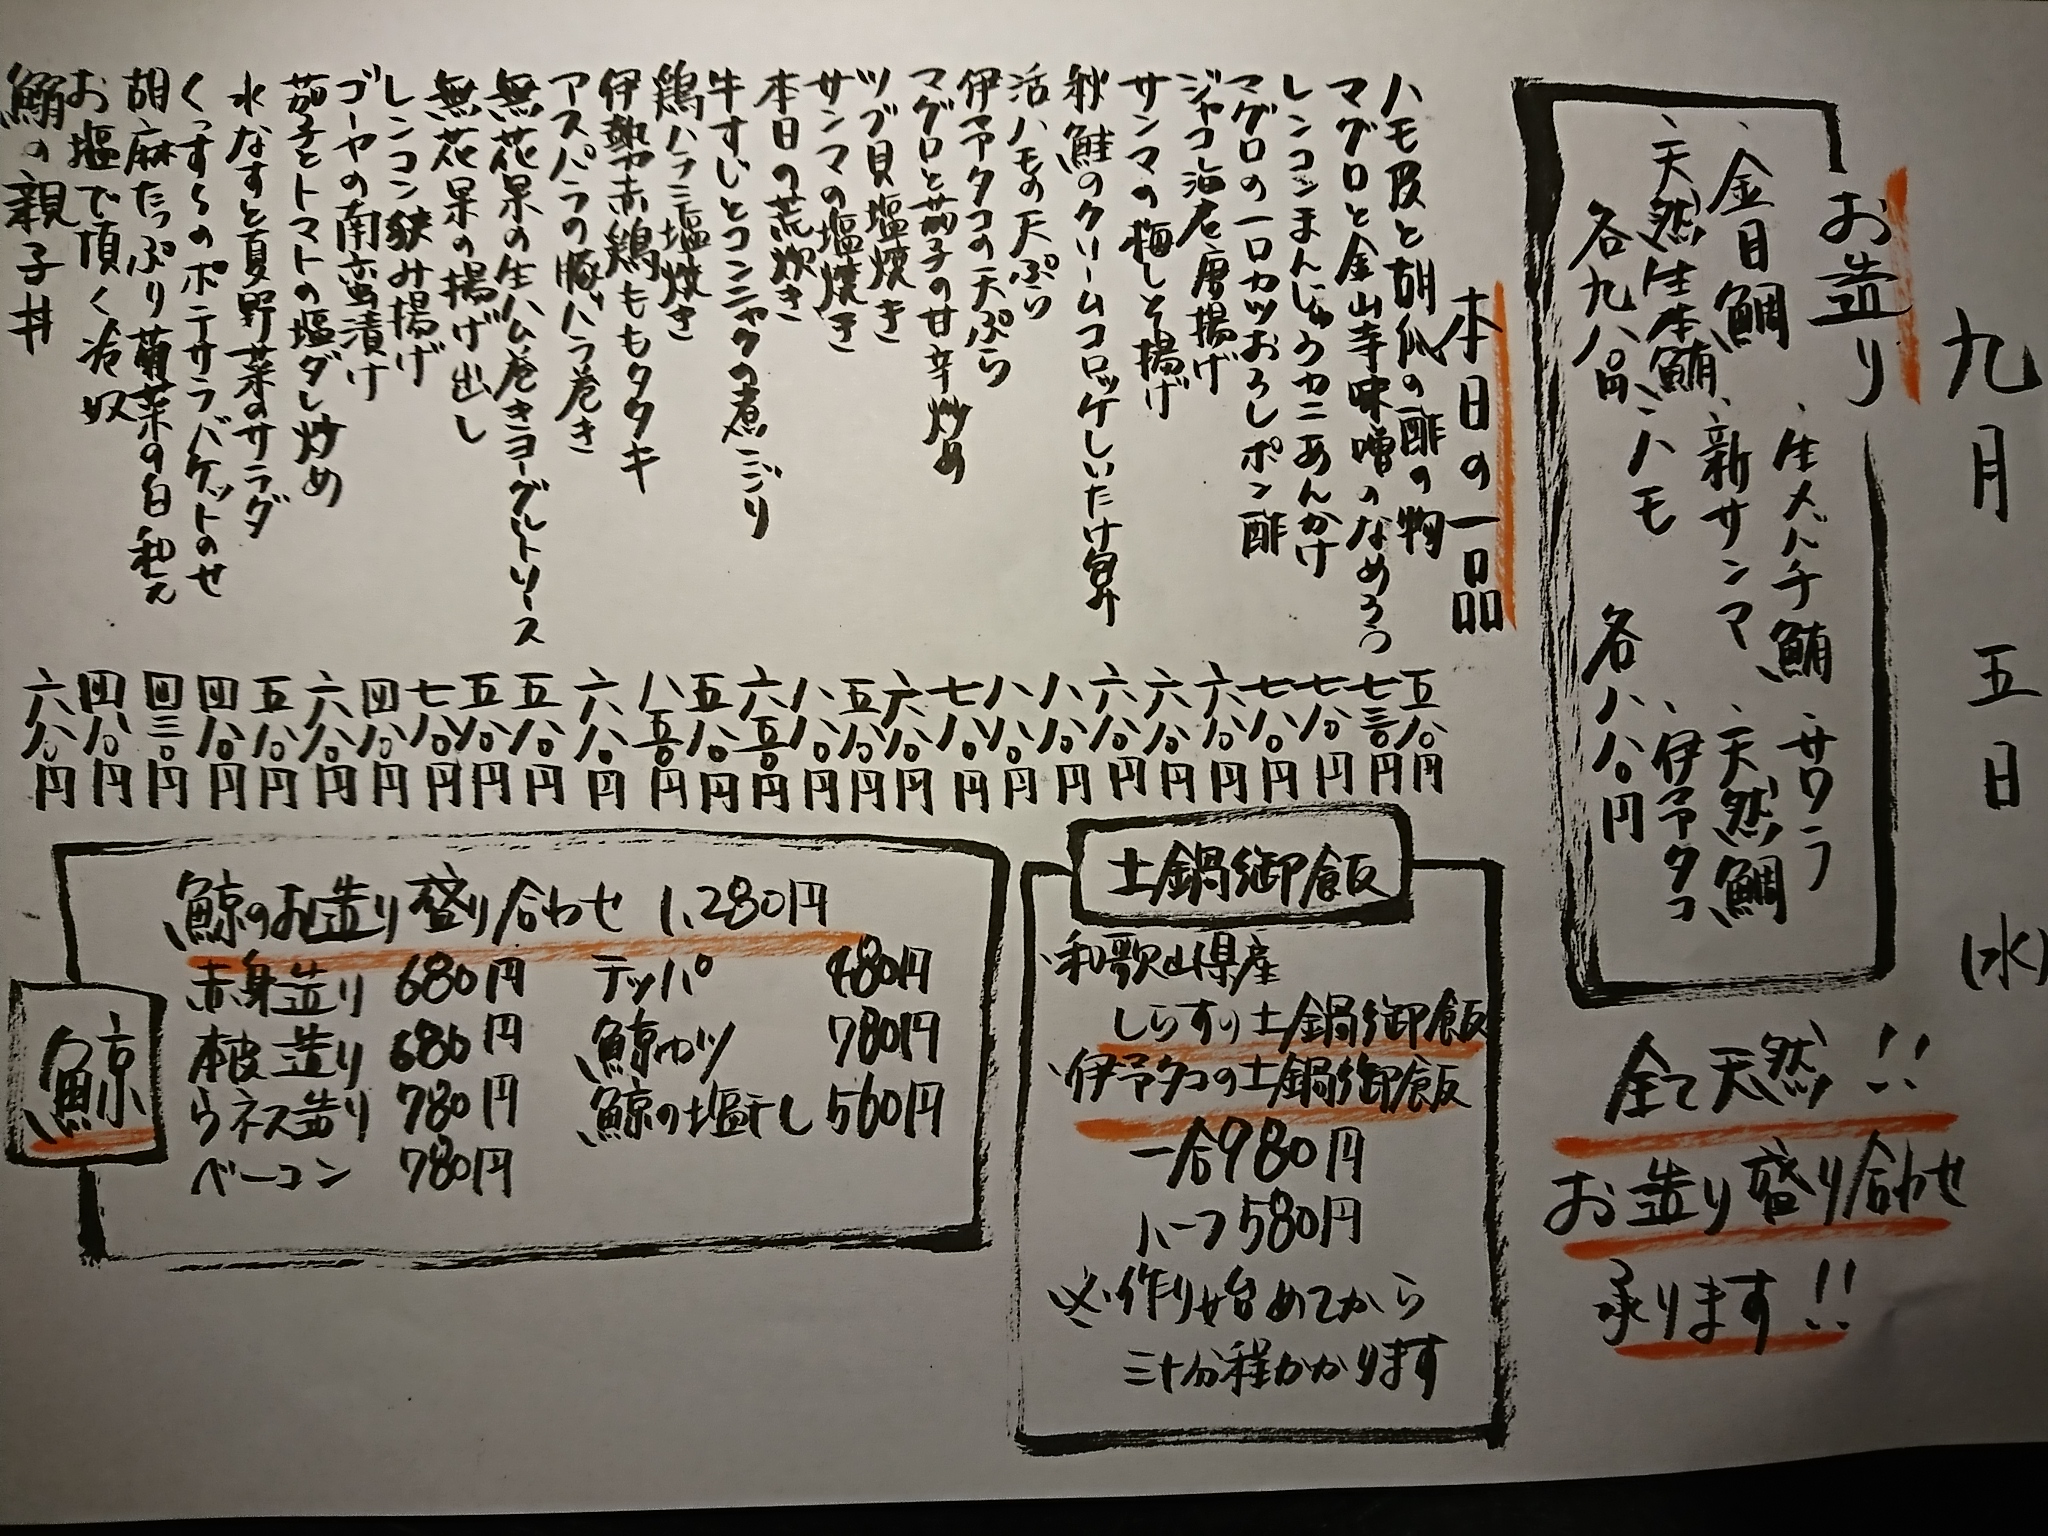 九月五日(水)
お造り
、生メバチ鮪 、サワラ
、金目鯛 、新サンマ 、天然鯛
、天然生本鮪 、ハモ 、伊予タコ
各九八〇円 各八八〇円
全て天然!!
お造り盛り合わせ
承ります!!
本日の一品
ハモ皮と胡瓜の酢の物 五八〇円
マグロと金山寺味噌のなめろう 七三〇円
レンコンまんじゅうカニあんかけ 七八〇円
マグロの一口カツおろしポン酢 七八〇円
ジャコ海老唐揚げ 六八〇円
サンマの梅しそ揚げ 六八〇円
秋鮭のクリームコロッケしいたけ包み 六八〇円
活ハモの天ぷら 八八〇円
伊予タコの天ぷら 八八〇円
マグロと茄子の甘辛炒め 七八〇円
ツブ貝塩焼き 六八〇円
サンマの塩焼き 五八〇円
本日の荒炊き 八八〇円
牛すじとコンニャクの煮こごり 六五〇円
鶏ハラミ塩焼き 五八〇円
赤鶏ももタタキ 八五〇円
アスパラの豚バラ巻き 六八〇円
無花果の生ハム巻きヨーグルトソース 五八〇円
無花果の揚げ出し 五八〇円
レンコン挟み揚げ 七八〇円
ゴーヤの南蛮漬け 四八〇円
茄子とトマトの塩ダレ炒め 六八〇円
水なすと夏野菜のサラダ 五八〇円
ポテサラバケットのせ 四八〇円
胡麻たっぷり菊菜の白和え 四三〇円
お塩で頂く冷奴 四八〇円
鮪の親子丼 六八〇円
土鍋御飯
・和歌山県産
しらすの土鍋御飯
・伊予タコの土鍋御飯
一合980円
ハーフ580円
※作り始めてから
三十分程かかります
鯨
鯨のお造り盛り合わせ 1,280円
赤身造り 680円 テッパ 480円
本皮造り 680円 鯨カツ 780円
ウネス造り 780円 鯨の塩干し 560円
ベーコン 780円